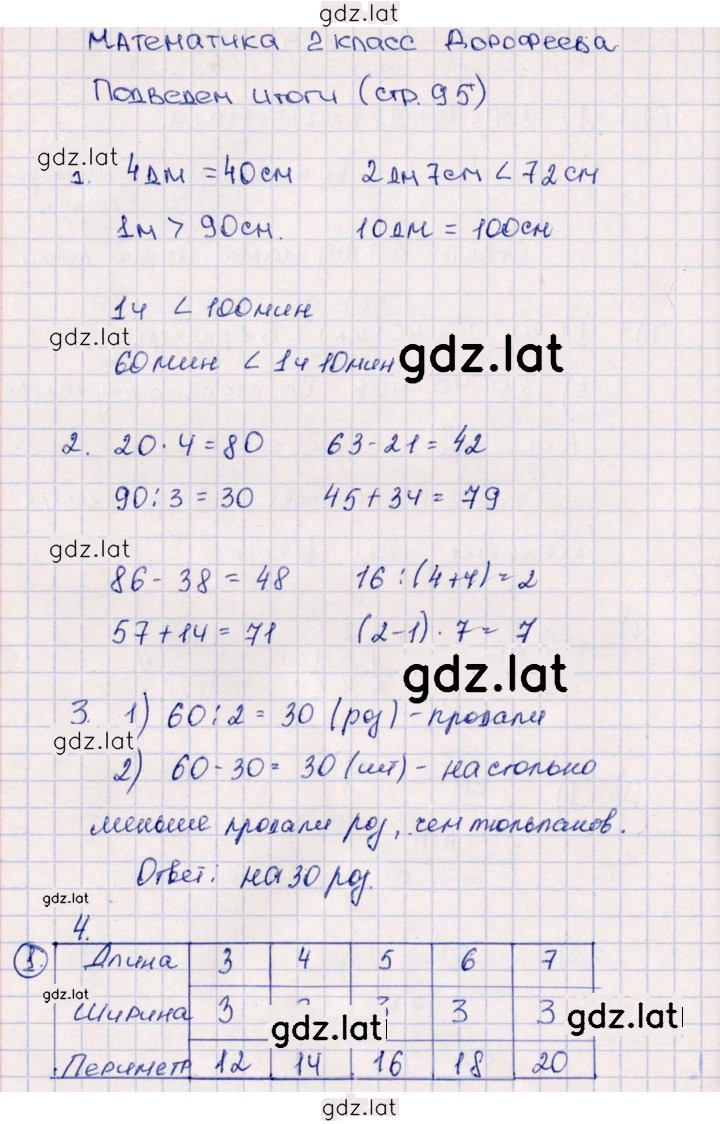 gdz.lat
Математика 2 класс Дорофеева
Подведем итоги (стр. 95)
gdz.lat
1. 4дм = 40см 2дм 7см < 72см
1м > 90см. 10дм = 100см
1ч < 100мин
gdz.lat
60мин < 1ч 10мин
gdz.lat
2. 20 · 4 = 80 63 - 21 = 42
90 : 3 = 30 45 + 34 = 79
gdz.lat
86 - 38 = 48 16 : (4+4) = 2
57 + 14 = 71 (2-1) · 7 = 7
gdz.lat
3. 1) 60 : 2 = 30 (роз) - продали
gdz.lat
2) 60 - 30 = 30 (шт) - на столько
меньше продали роз, чем тюльпанов.
Ответ: на 30 роз.
gdz.lat
4.
1. Длина 3 4 5 6 7
gdz.lat
Ширина 3 3 3
gdz.lat
gdz.lat
Периметр 12 14 16 18 20
gdz.lat